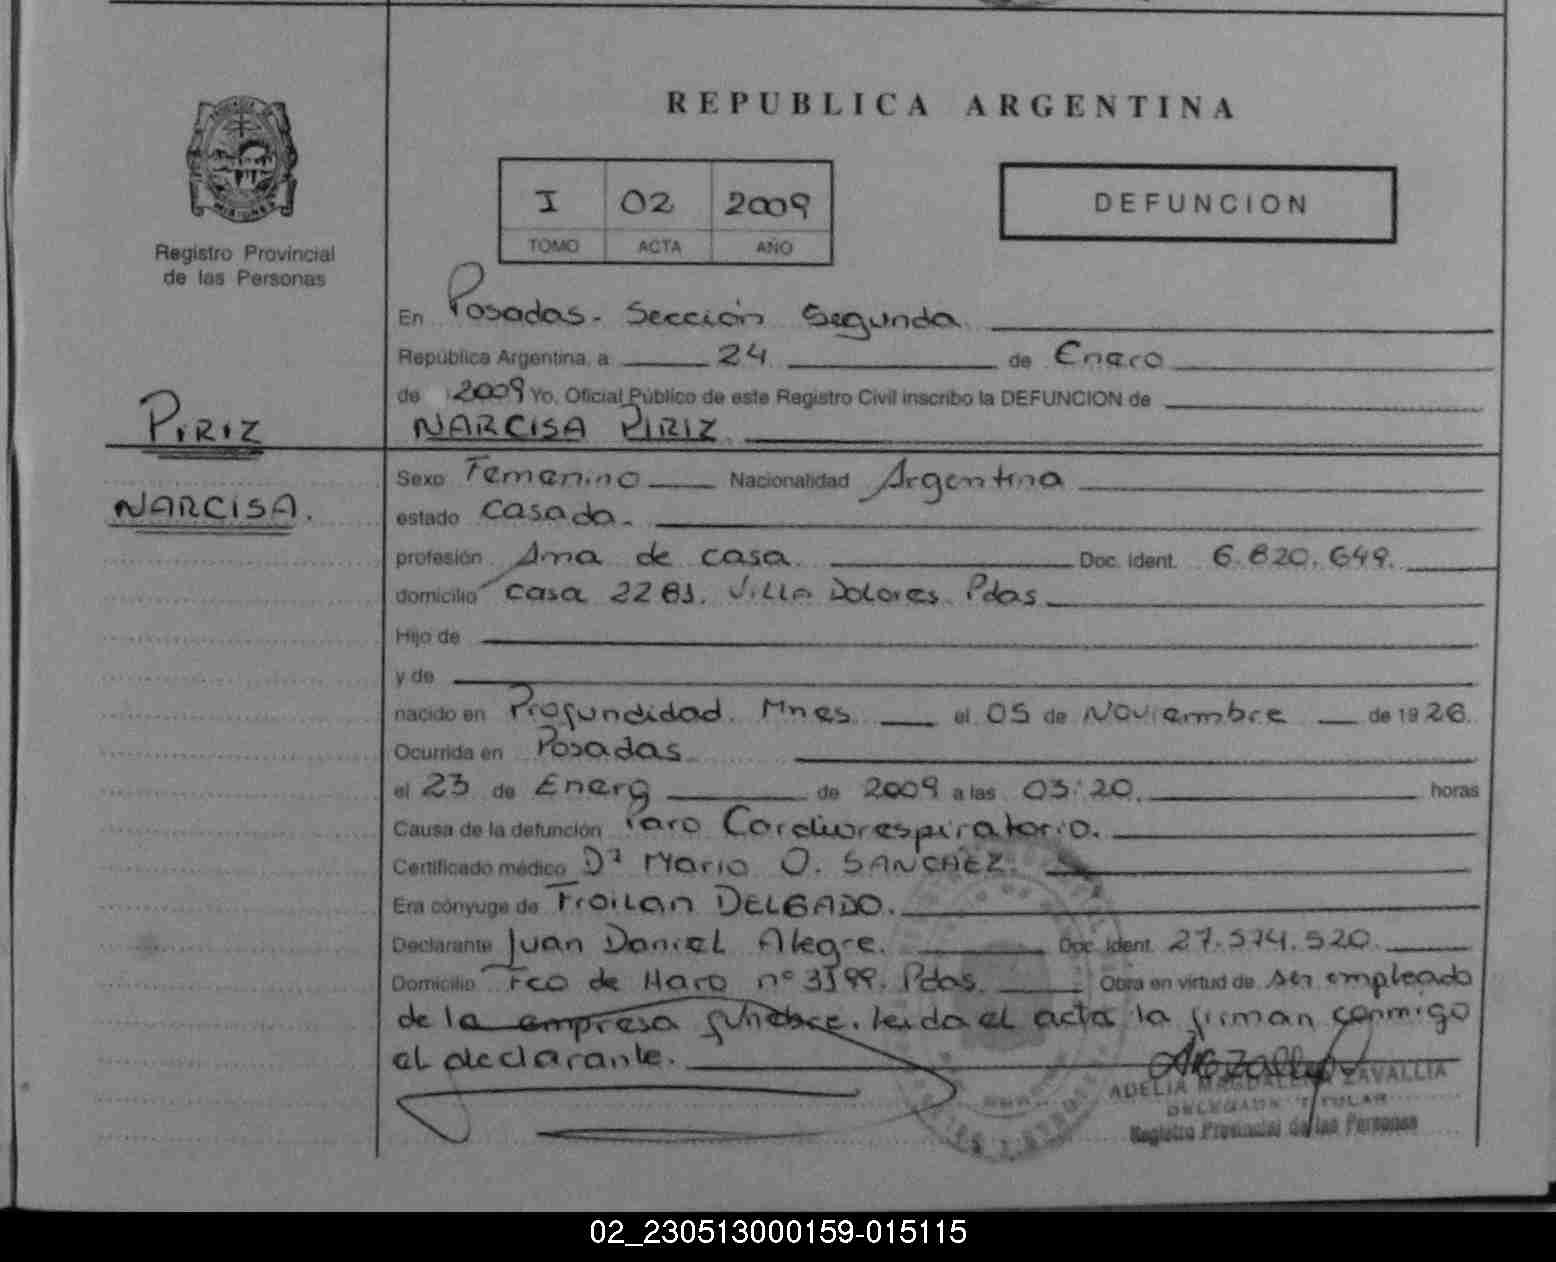 REPUBLICA ARGENTINA
Registro Provincial
de las Personas
I 02 2009
TOMO ACTA AÑO
DEFUNCION
En Posadas. Sección Segunda
República Argentina, a 24 de Enero
de 2009 Yo, Oficial Público de este Registro Civil inscribo la DEFUNCION de
NARCISA PIRIZ
PIRIZ
NARCISA.
Sexo Femenino Nacionalidad Argentina
estado Casada.
profesión Ama de casa Doc. Ident. 6.820.649.
domicilio casa 2281. VILLA Dolores. Pdas
Hijo de
y de
nacido en Profundidad. Mnes. el 05 de Noviembre de 1926.
Ocurrida en Posadas
el 23 de Enero de 2009 a las 03:20. horas
Causa de la defunción Paro Cardiorespiratorio.
Certificado médico Dr Mario O. SANCHEZ.
Era cónyuge de Froilan DELGADO.
Declarante Juan Daniel Alegre. Doc. Ident. 27.574.520.
Domicilio Fco de Haro nº 3199. Pdas. Obra en virtud de ser empleado
de la empresa funebre. leida el acta la firman conmigo
el declarante.
ADELIA MAGDALENA ZAVALLIA
DELEGADA TITULAR
Registro Provincial de las Personas
02_230513000159-015115